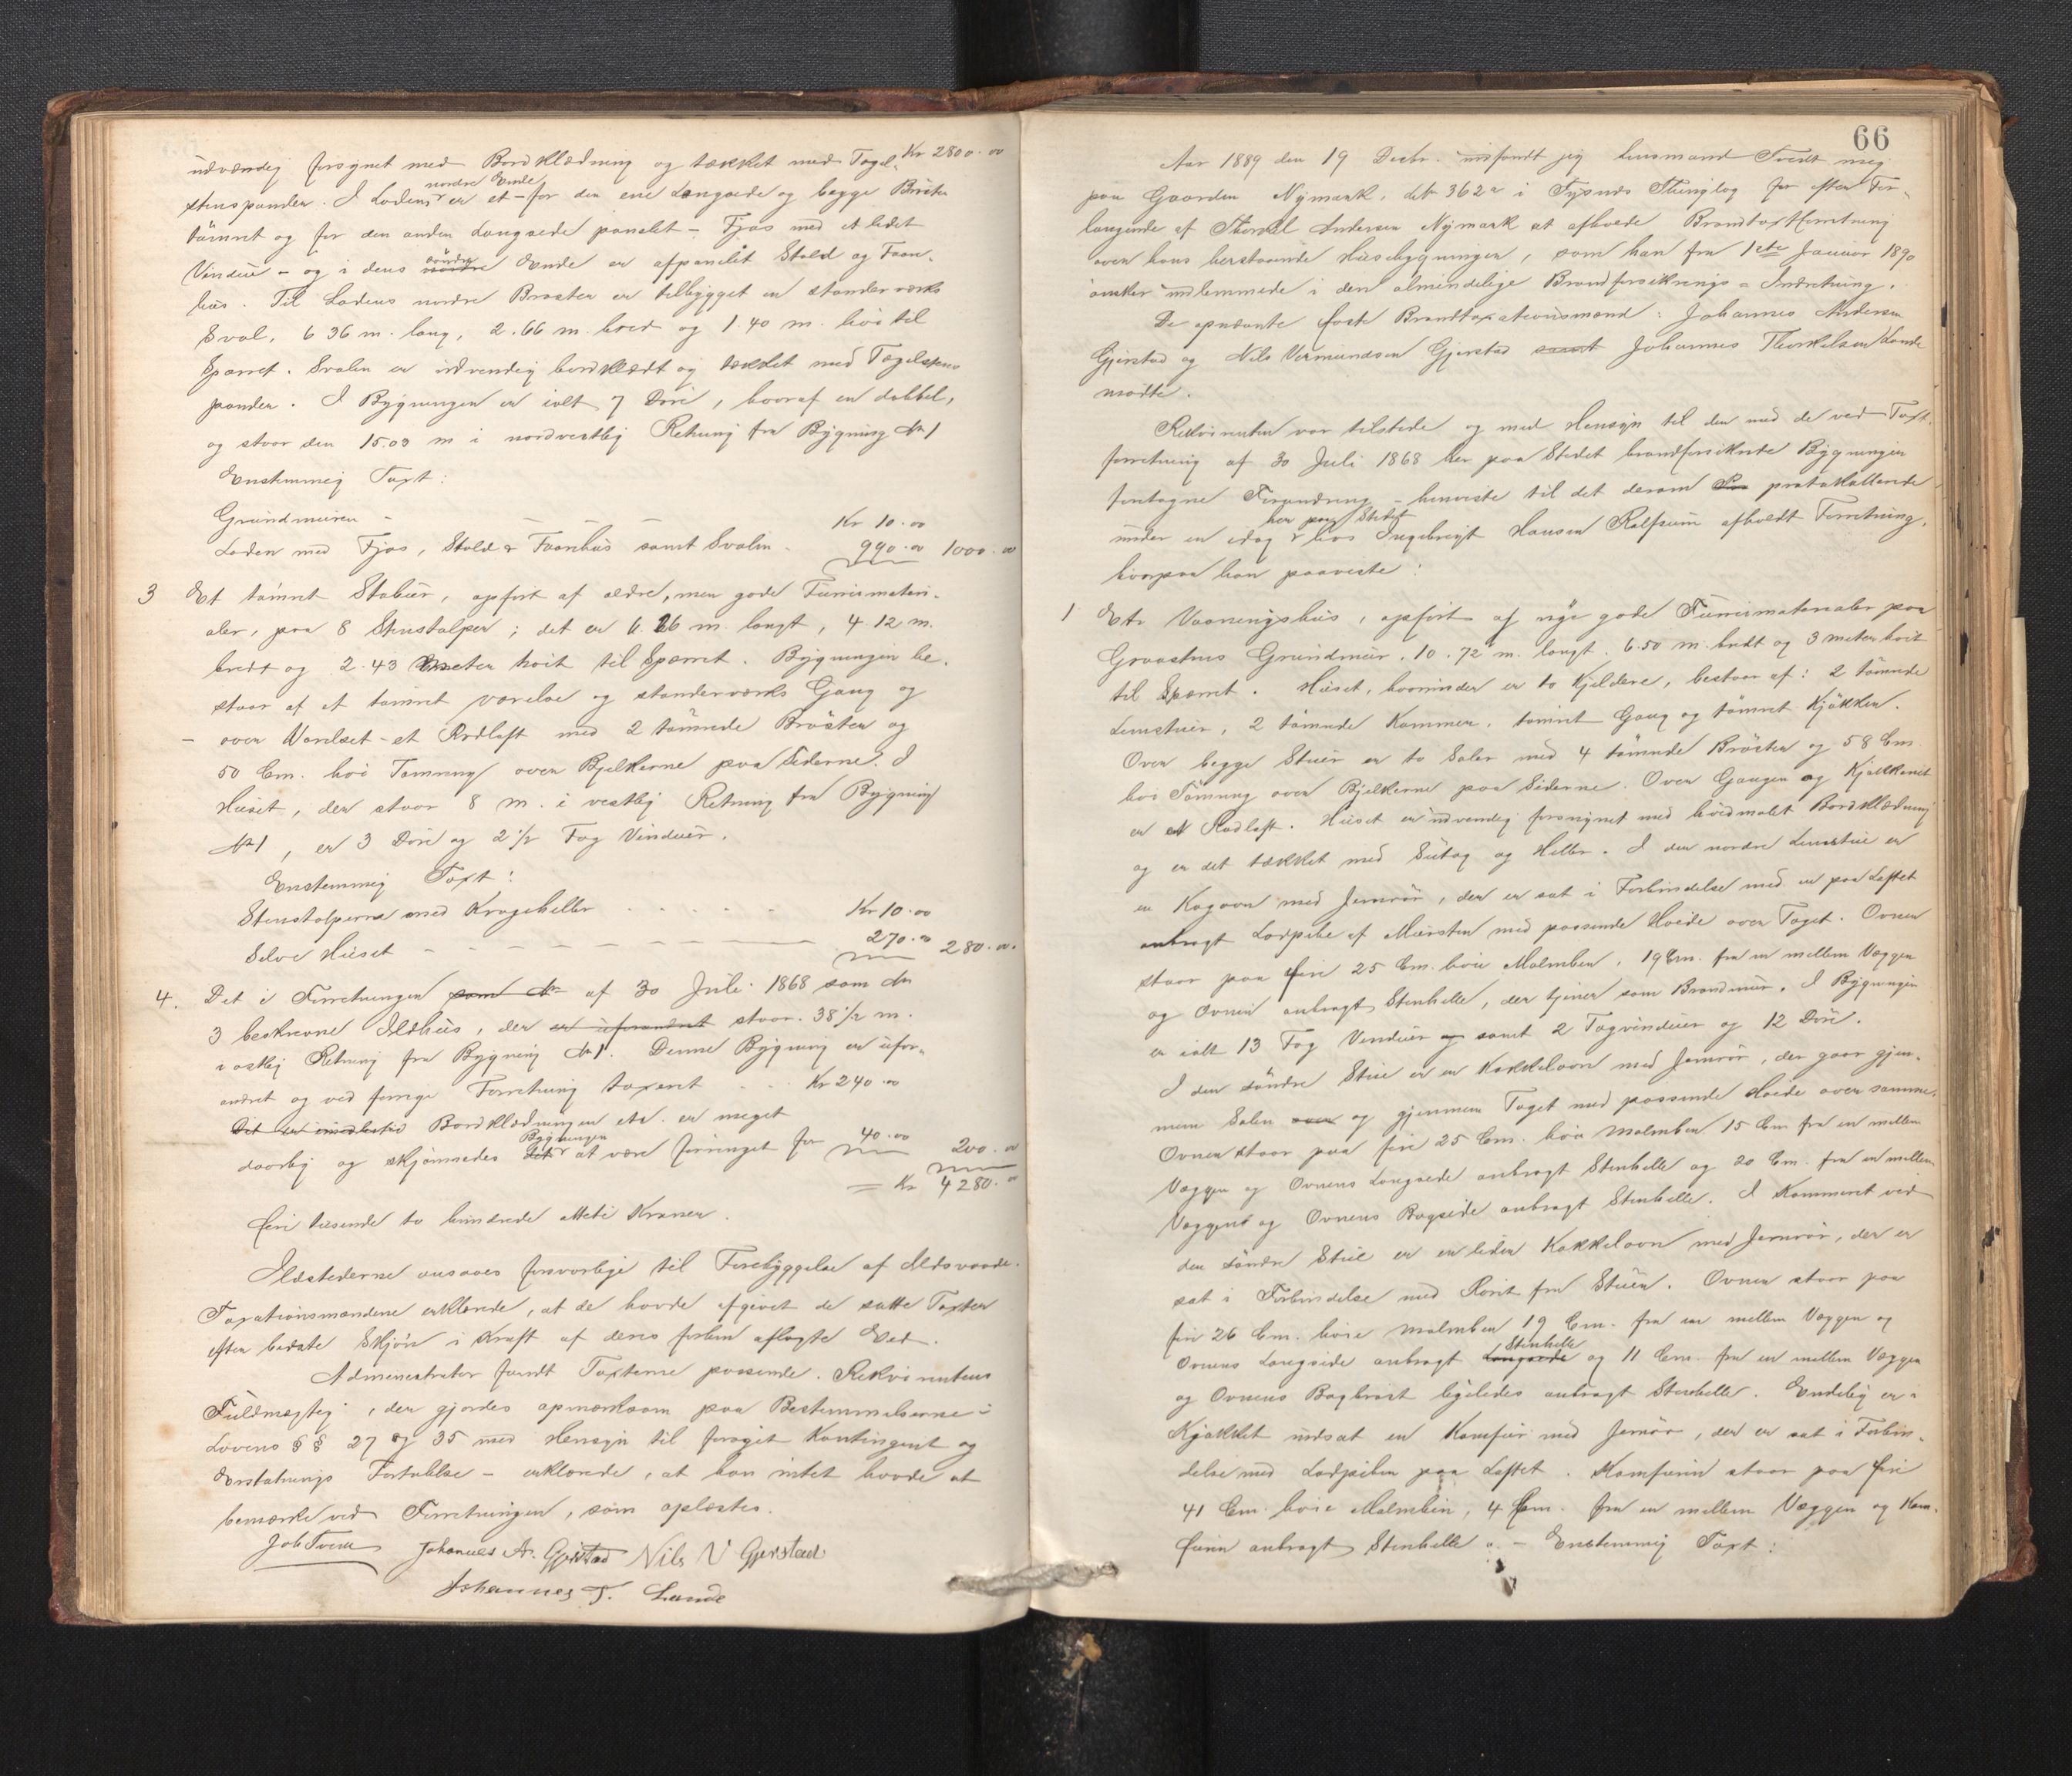 udvændig forsynet med Bordklædning og tækket med Tagel- Kr 2800.00
stenspander. I Ladens nordre Ende er et - for den ene Langside og begge Brøster
tømret og for den anden Langside panelet - Fjøs med et ledet
Vindue - og i dens nordre søndre Ende er afpanelet Stald og Faar-
hus. Til Ladens nordre Brøster er tilbygget en standerværks
Sval, 6.36 m. lang, 2.66 m. bred og 1.40 m. høi til
Sparret. Svalen er udvendig bordklædt og tækket med Tagelstens
pander. I Bygningen er ialt 7 Døre, hvoraf en dobbel,
og staar den 15.03 m i nordvestlig Retning fra Bygning № 1
Enstemmig Taxt:
Grundmuren - Kr 10.00
Laden med Fjøs, Stald & Faarehus samt Svalen - 990.00 1000.00
3 Et tømret Stabur, opført af ældre, men gode Furumateri-
aler, paa 8 Stenstolper; det er 6.26 m. langt, 4.12 m.
bredt og 2.43 meter høit til Sparret. Bygningen be-
staar af et tømret værelse og standerværks Gang og
- over Værelset - et Rodloft med 2 tømrede Brøster og
50 Cm. høi Tømring over Bjelkerne paa Siderne. I
Huset, der staar 8 m. i vestlig Retning fra Bygning
№ 1, er 3 Døre og 2 1/2 Fag Vinduer.
Enstemmig Taxt:
Stenstolperne med Krageheller - - - - Kr 10.00
Selve Huset - - - - - - 270.00 280.00
4. Det i Forretningen som № af 30 Juli 1868 som №
3 beskrevne Ildhus, der er uforandret staar 38 1/2 m.
i østlig Retning fra Bygning № 1. Denne Bygning er ufor-
andret og ved forrige Forretning taxeret - - Kr 240.00
Det er imidlertid Bordklædningen etc. er meget
daarlig og skjønnedes det Bygningen at være forringet for 40.00 200.00
= Kr 4280.00
fire tusende to hundrede otteti Kroner.
Ildstederne ansaaes forsvarlige til Forebyggelse af Ildsvaade.
Taxationsmændene erklærede, at de havde afgivet de satte Taxter
efter bedste Skjøn i Kraft af deres forhen aflagte Eed.
Administrator fandt Taxterne passende. Rekvirentens
Fuldmægtig, der gjordes opmærksom paa Bestemmelserne i
Lovens §§ 27 og 35 med Hensyn til forøget Kontingent og
Erstatnings Fortabelse - erklærede, at han intet havde at
bemærke ved Forretningen, som oplæstes.
Job Tveit Johannes A. Gjerstad Nils V Gjerstad
Johannes T. Lunde
66
Aar 1889 den 19 Decbr. indfandt jeg Lensmand Tveit mig
paa Gaarden Nymark, № 362 a i Thinglag for efter For-
langende af Andersen Nymark at afholde Brandtaxtforretning
over hans herstaaende Husebygninger, som han fra 1ste Januar 1890
ønsker indlemmede i den almindelige Brandforsikrings-Indretning.
De opnævnte faste Brandtaxationsmænd: Johannes Andersen
Gjerstad og Nils Vermundsen Gjerstad samt Johannes Thorkelsen Lunde
mødte.
Rekvirenten var tilstede og med Hensyn til den med de ved Taxt-
forretning af 30 Juli 1868 her paa Stedet brandforsikrede Bygninger
foretagne Forandring - henviste til det derom protokollerede
under en idag her paa Stedet hos Ingebrigt Hansen afholdt Forretning,
hvorpaa han paaviste:
1 Et Vaaningshus, opført af nye gode Furumaterialer paa
Graastens Grundmur, 10.72 m. langt, 6.50 m. bredt og 3 meter høit
til Sparret. Huset, hvorunder er to Kjeldere, bestaar af: 2 tømrede
Lemstuer, 2 tømrede Kammer, tømret Gang og tømret Kjøkken.
Over begge Stuer er to Saler med 4 tømrede Brøster og 58 Cm.
høi Tømring over Bjelkerne paa Siderne. Over Gangen og Kjøkkenet
er et Rodloft. Huset er udvendig forsynet med hvidmalet Bordklædning
og er det tækket med Sutag og Heller. I den nordre Lemstue er
en Kogovn med Jernrør, der er sat i Forbindelse med en paa Loftet
anbragt Ladpibe af Mursten med passende Høide over Taget. Ovnen
staar paa fire 25 Cm. høie Malmben, 19 Cm. fra en mellem Væggen
og Ovnen anbragt Stenhelle, der tjener som Brandmur. I Bygningen
er ialt 13 Fag Vinduer og samt 2 Tagvinduer og 12 Døre.
I den søndre Stue er en Kakkelovn med Jernrør, der gaar gjen-
nem Salen over og gjennem Taget med passende Høide over samme.
Ovnen staar paa fire 25 Cm. høie Malmben 15 Cm fra en mellem
Væggen og Ovnens Langside anbragt Stenhelle og 20 Cm. fra en mellem
Væggen og Ovnens Bagside anbragt Stenhelle. I Kammeret ved
den søndre Stue er en liden Kakkelovn med Jernrør, der er
sat i Forbindelse med Røret fra Stuen. Ovnen staar paa
fire 26 Cm. høie Malmben 19 Cm. fra en mellem Væggen og
Ovnens Langside anbragt Langside Stenhelle og 11 Cm. fra en mellem Væggen
og Ovnens Bagbrist ligeledes anbragt Stenhelle. Endelig er i
Kjøkket indsat en Komfur med Jernrør, der er sat i Forbin-
delse med Ladpiben paa Loftet. Komfuren staar paa fire
41 Cm. høie Malmben, 4 Cm. fra en mellem Væggen og Kom-
furen anbragt Stenhelle. - Enstemmig Taxt: